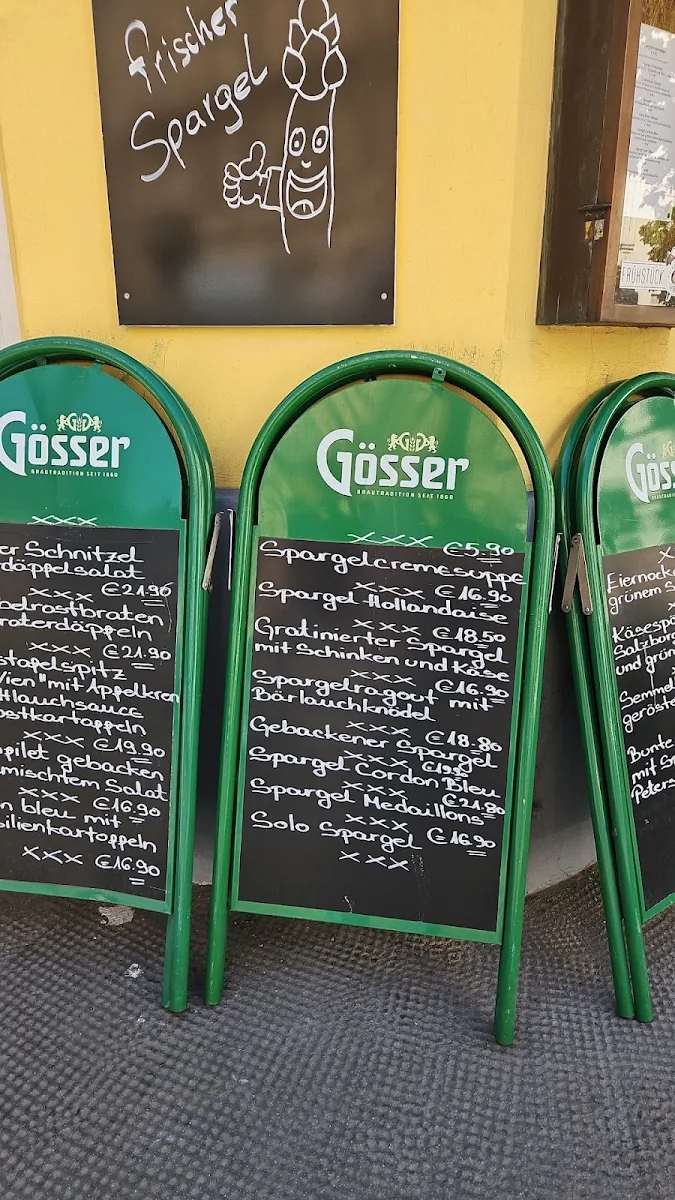 frischer
Spargel
FRÜHSTÜCK
Gösser
BRAUTRADITION SEIT 1860
xxx
er Schnitzel
rdäppelsalat
xxx €21.90
belrostbraten
raterdäppeln
xxx €21.90
stafelspitz
Wien" mit Appelkren
ttlauchsauce
ostkartoppeln
xxx €19.90
pilet gebacken
mischtem Salat
xxx €16.90
n bleu mit
silienkartoppeln
xxx €16.90
Gösser
BRAUTRADITION SEIT 1860
xxx €5.90
Spargelcremesuppe
xxx €16.90
Spargel Hollandaise
xxx €18.50
Gratinierter Spargel
mit Schinken und Käse
xxx €16.90
Spargelragout mit
Bärlauchknödel
xxx €18.80
Gebackener Spargel
xxx
Spargel Cordon Bleu
xxx €21.80
Spargel Medaillons
xxx €16.90
Solo Spargel
xxx
Göss
x
Eiernocke
grünem S
Käsespä
Salzburg
und grün
Semmel
geröste
Bunte
mit S
Peters